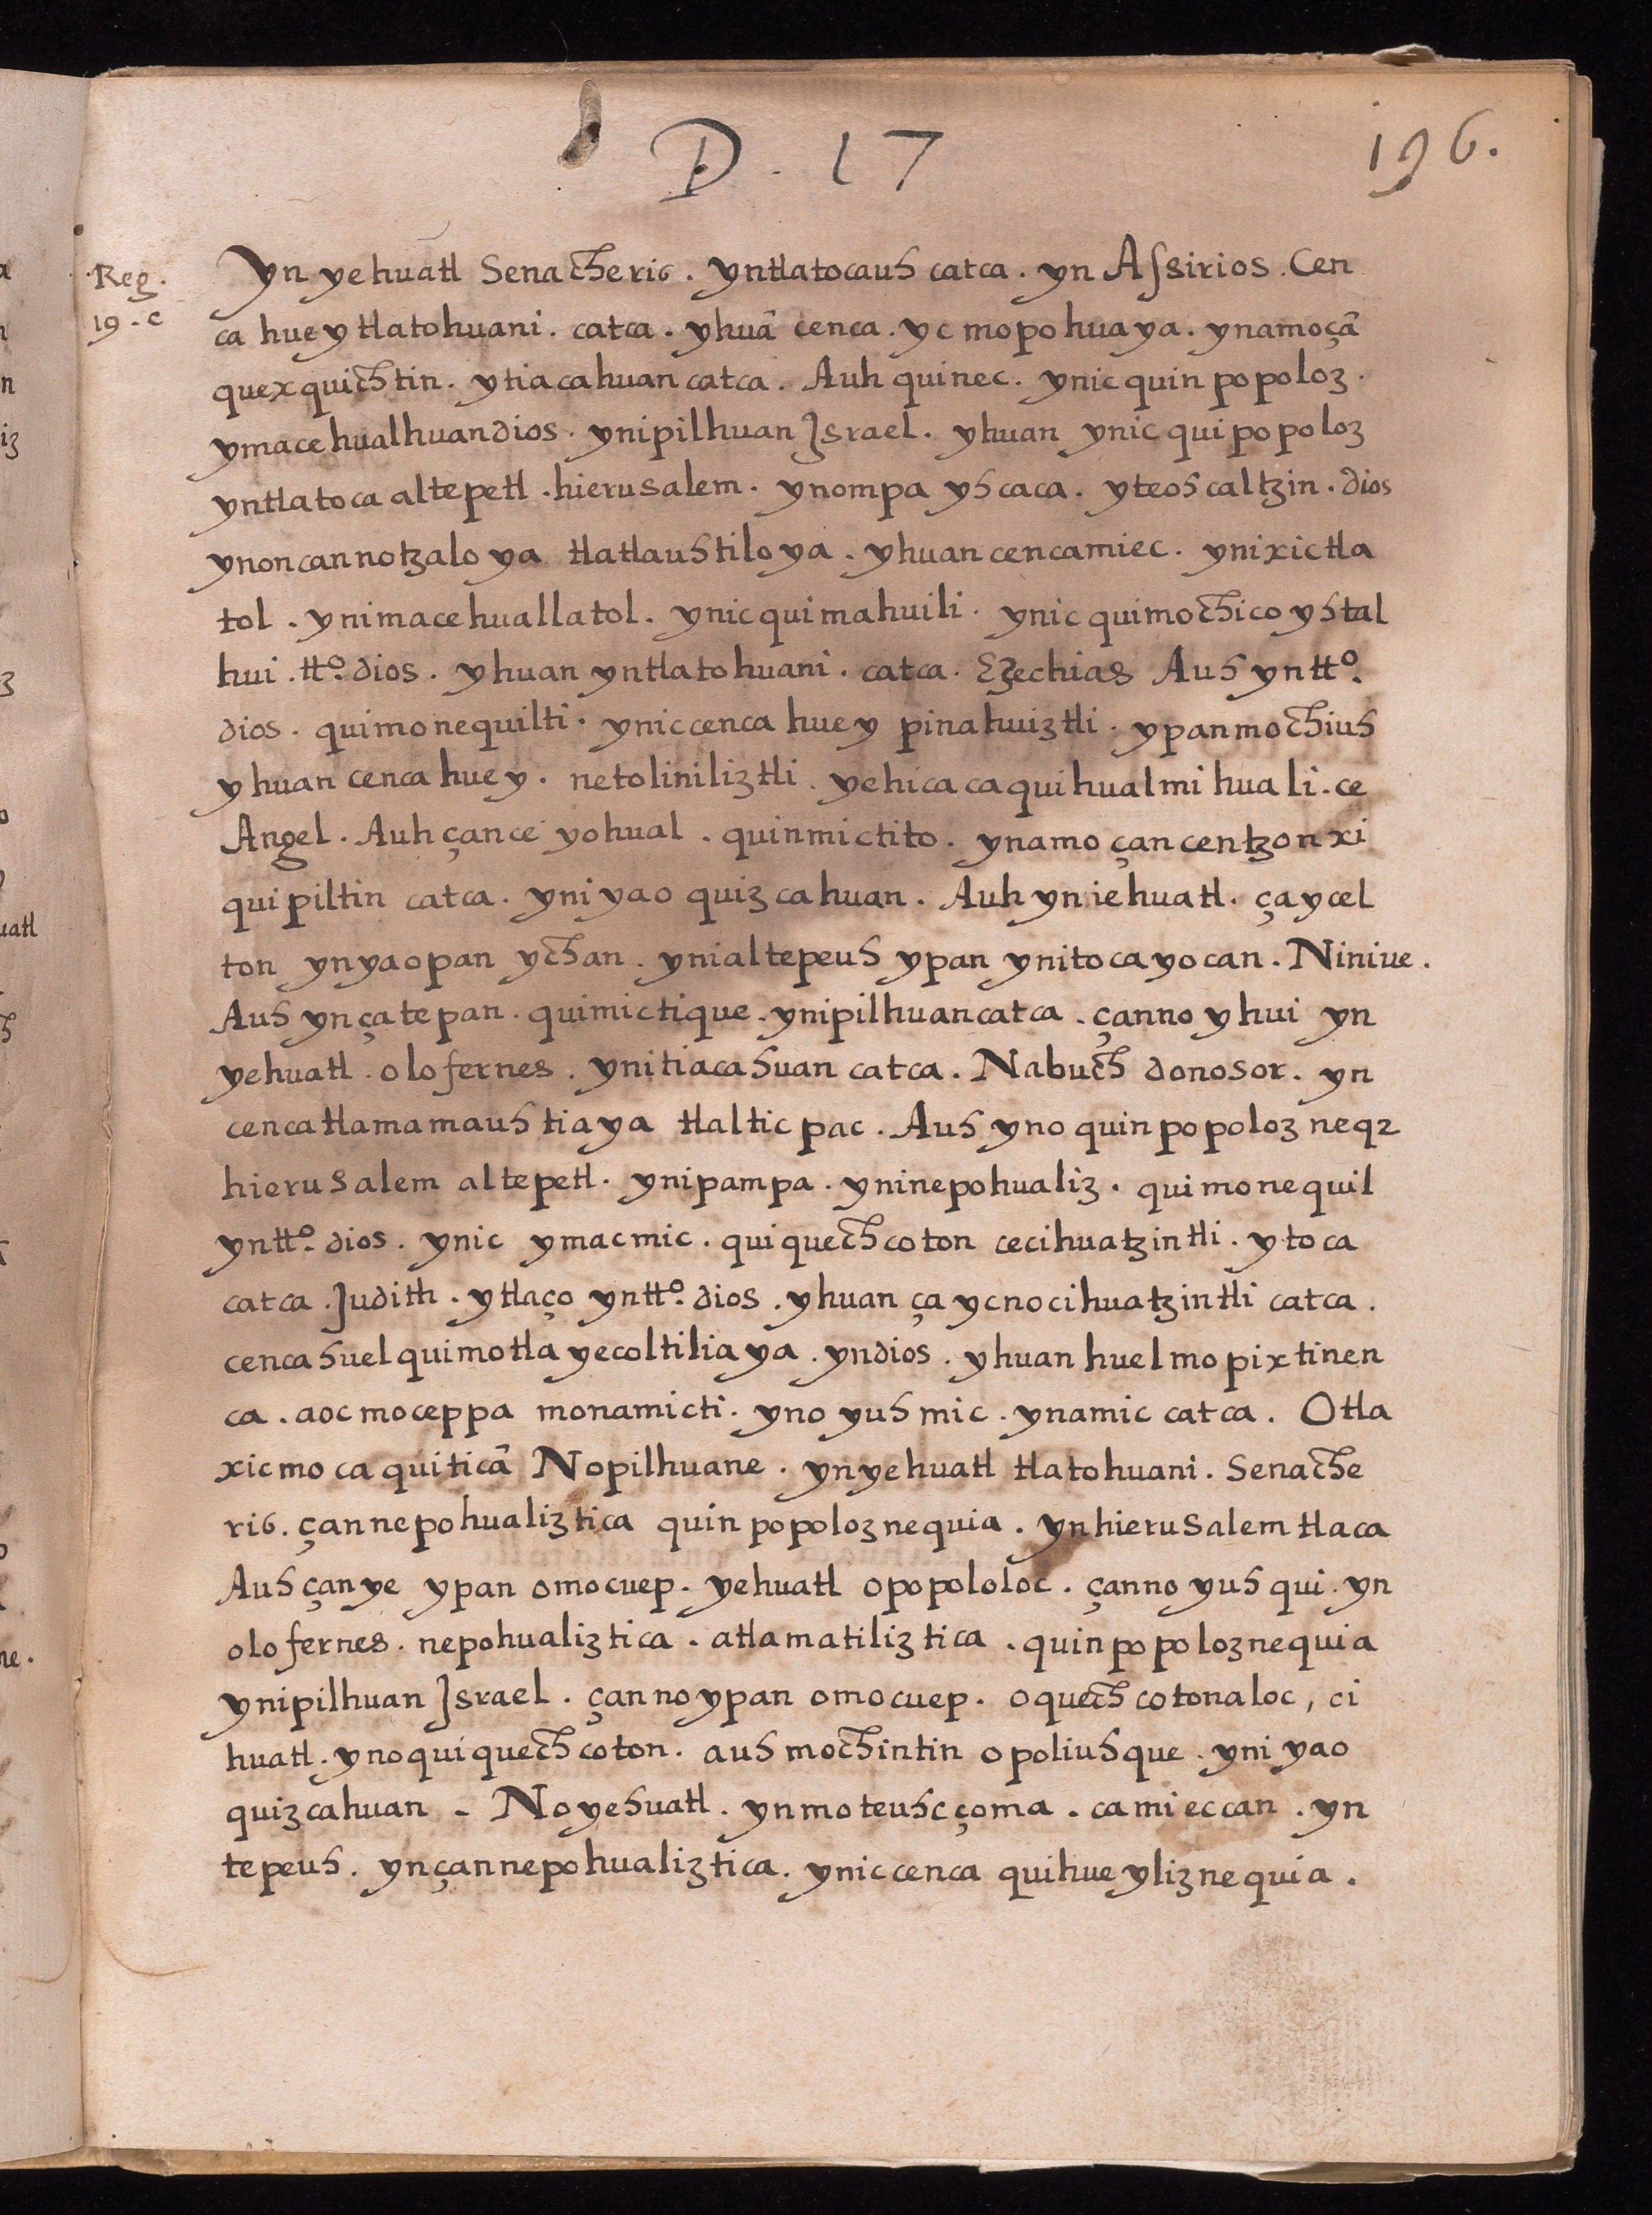 D. 17
196.
Reg.
19. c
Yn yehuatl Senacherib. yntlatocauh catca. yn Assirios. Cen
ca huey tlatohuani. catca. yhuā cenca. yc mopohuaya. ynamoçā
quexquichtin. ytiacahuan catca. Auh quinec. ynic quin popoloz.
ymacehualhuan dios. ynipilhuan Israel. yhuan ynic quipopoloz
yntlatoca altepetl. hierusalem. ynompa yhcaca. yteohcaltzin. dios
ynoncan notzaloya tlatlauhtiloya. yhuan cencamiec. ynixictla
tol. ynimacehuallatol. ynic quimahuili. ynic quimochicoyhtal
hui. tto. dios. yhuan yntlatohuani. catca. Ezechias Auh yntto.
dios. quimonequilti. ynic cenca huey pinahuiztli. ypanmochiuh
yhuan cenca huey. netoliniliztli. yehica ca quihualmihuali. ce
Angel. Auh çan ce yohual. quinmictito. ynamo çan centzonxi
quipiltin catca. yni yaoquizcahuan. Auh yniehuatl. çaycel
ton ynyaopan ychan. ynialtepeuh ypan ynitocayocan. Niniue.
Auh ynçatepan. quimictique. ynipilhuancatca. çanno yhui yn
yehuatl. olofernes. ynitiacahuan catca. Nabuch donosor. yn
cenca tlamamauhtiaya tlalticpac. Auh yno quinpopoloz neq2
hierusalem altepetl. ynipampa. yninepohualiz. quimonequil
yntto. dios. ynic ymacmic. quiquechcoton cecihuatzintli. ytoca
catca. Judith. ytlaço yntto. dios. yhuan ça ycnocihuatzintli catca.
cenca huel quimotlayecoltiliaya. yndios. yhuan huel mopixtinen
ca. aocmoceppa monamicti. yno yuh mic. ynamic catca. Otla
xicmocaquiticā Nopilhuane. ynyehuatl tlatohuani. Senache
rib. çannepohualiztica quinpopoloznequia. ynhierusalem tlaca
Auh çanye ypan omocuep. yehuatl opopololoc. çanno yuhqui. yn
olofernes. nepohualiztica. atlamatiliztica. quinpopoloznequia
ynipilhuan Israel. çanno ypan omocuep. oquechcotonaloc, ci
huatl. ynoquiquechcoton. auh mochintin opoliuhque. yni yao
quizcahuan - No yehuatl. ynmoteuhcçoma. ca mieccan. yn
tepeuh. ynçannepohualiztica. ynic cenca quihueyliznequia.